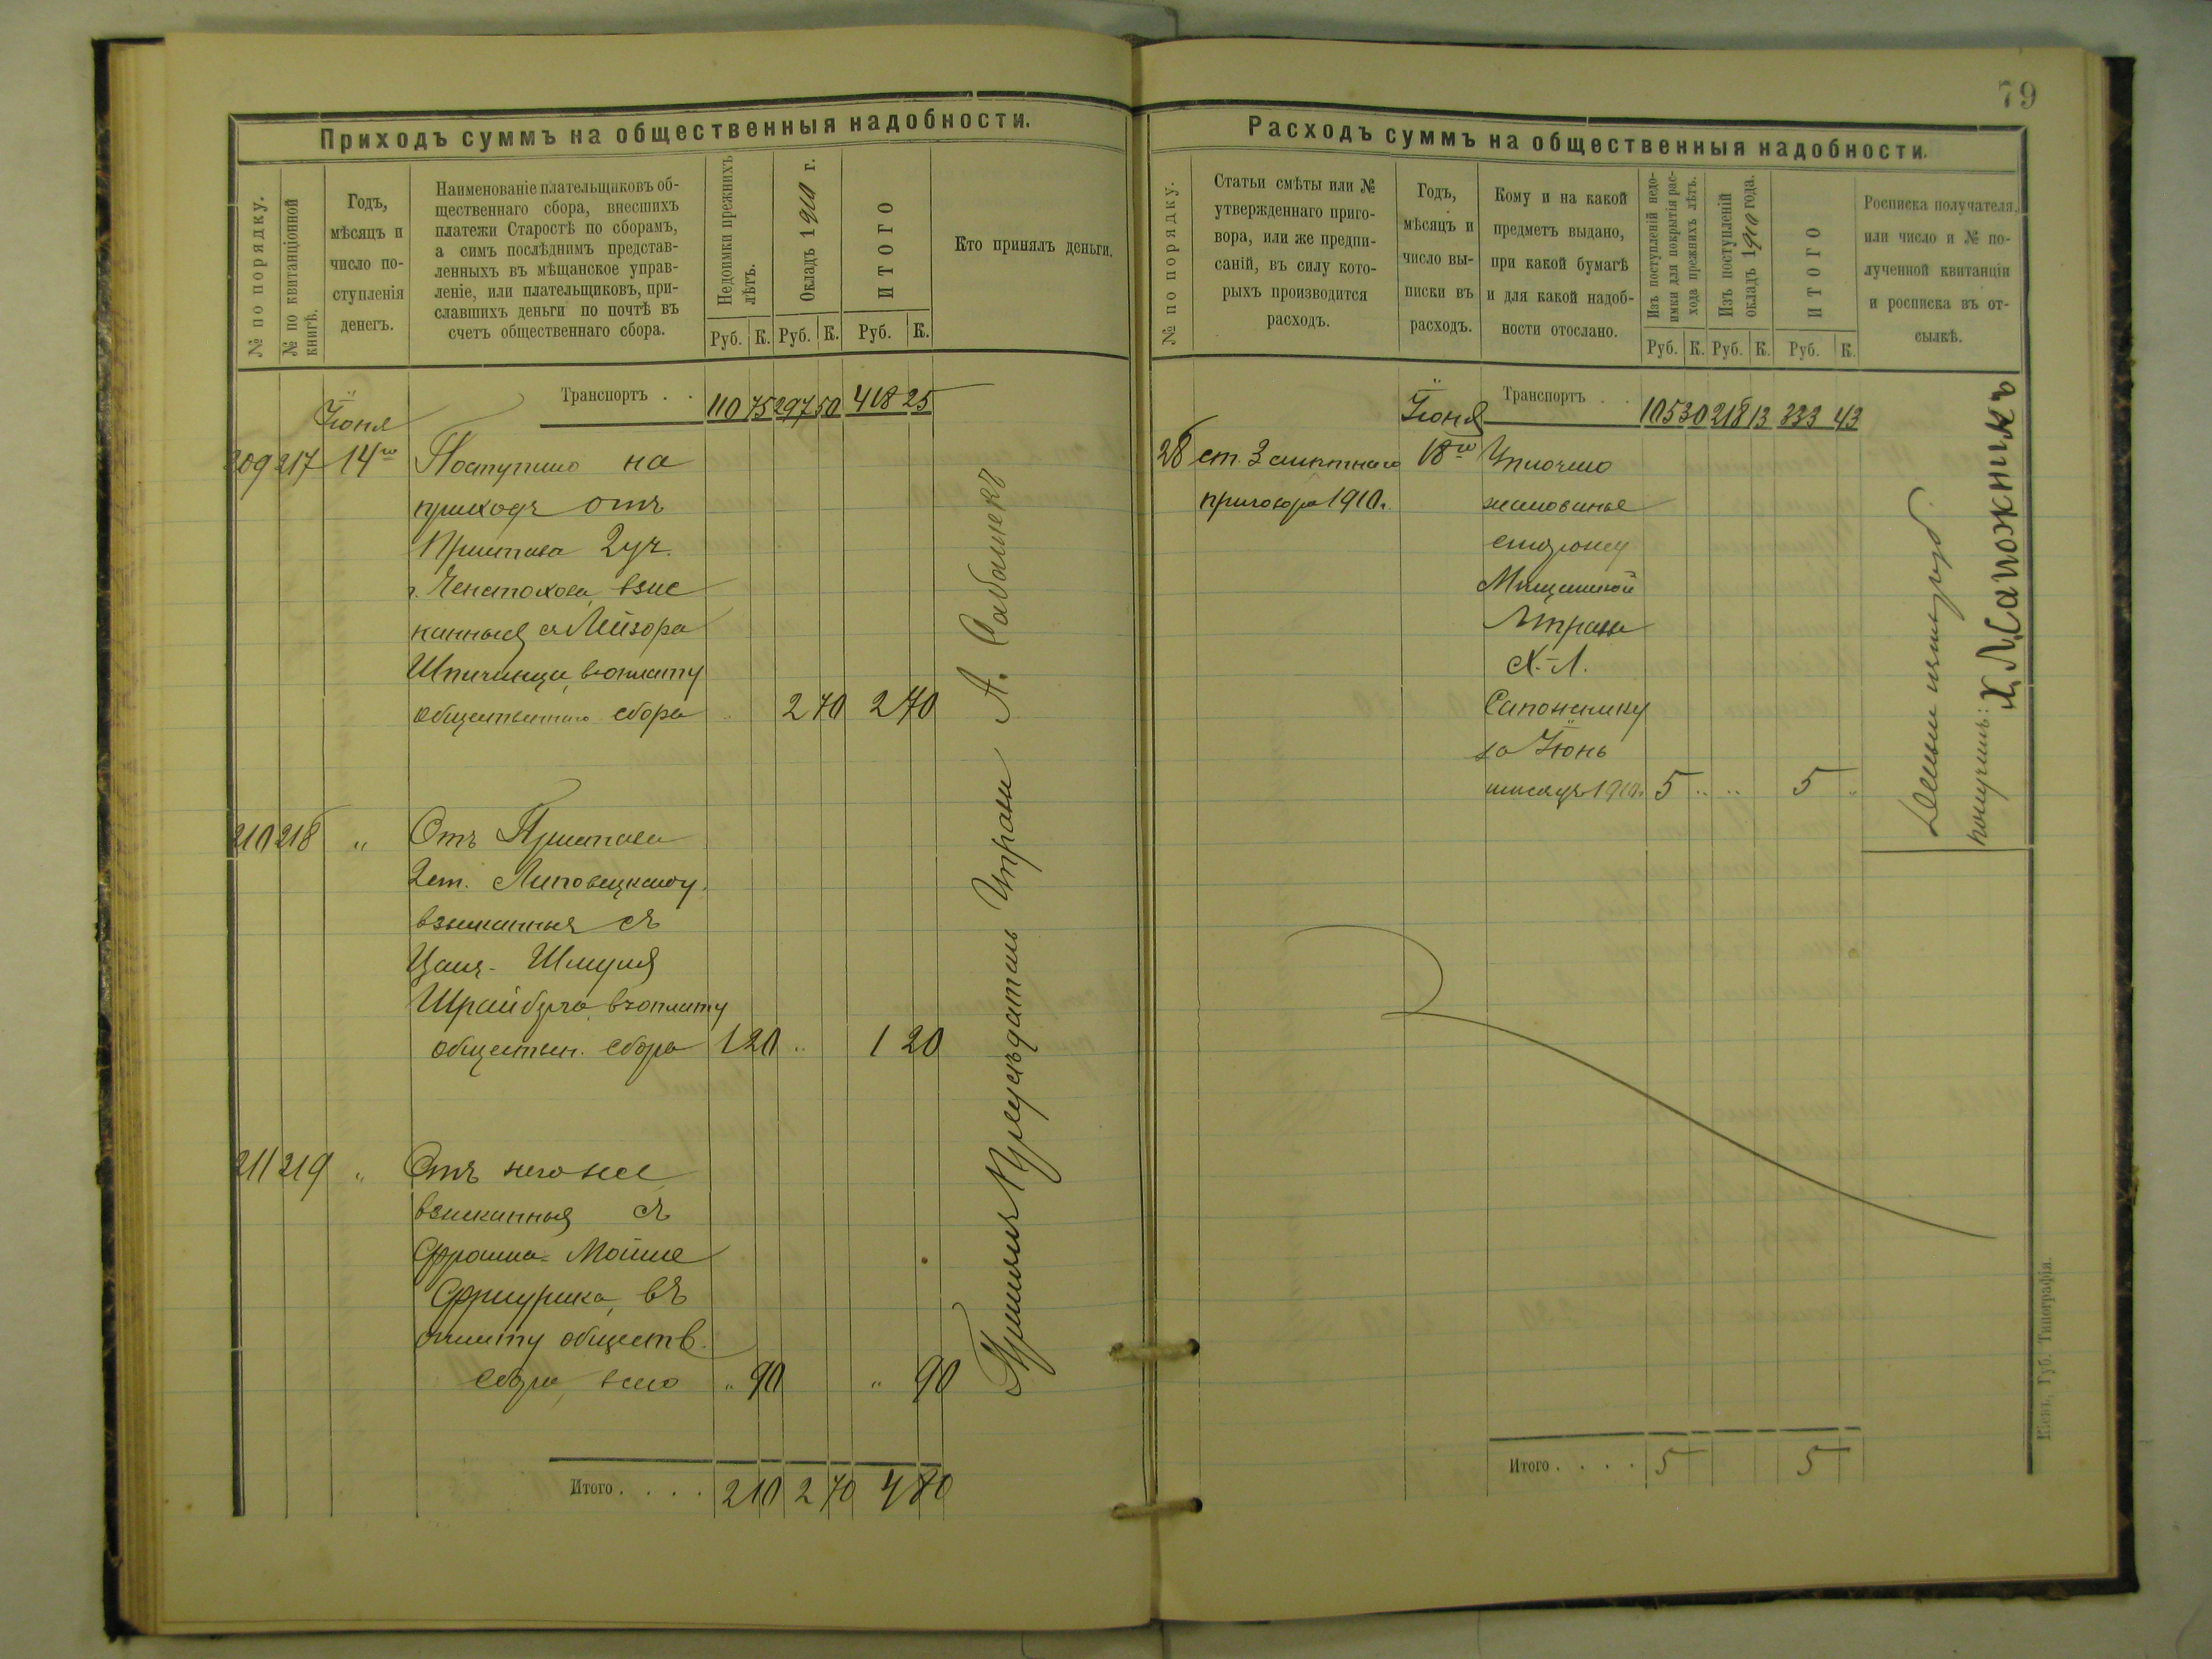 Приходъ суммъ на общественныя надобности.
№ по порядку.
№ по квитанціонной книгѣ.
Годъ,
мѣсяцъ и
число по-
ступленія
денегъ.
Наименованіе плательщиковъ об-
щественнаго сбора, внесшихъ
платежи Старостѣ по сборамъ,
а симъ послѣднимъ представ-
ленныхъ въ мѣщанское управ-
леніе, или плательщиковъ, при-
славшихъ деньги по почтѣ въ
счетъ общественнаго сбора.
Недоимки прежнихъ
лѣтъ.
Окладъ 1910 г.
ИТОГО
Руб. К. Руб. К. Руб. К.
Кто принялъ деньги.
Транспортъ . . 110 75 297 50 418 25
Іюня
209 217 14го Поступило на
приходъ отъ
Пристава 2 уч.
г. Ченстохова, взыс
канныя съ Лейзора
въ оплату
общественнаго сбора 2 70 2 70
210 218 " Отъ Пристава
2 ст. Липовецкаго у.
взысканныя съ
Шмуля
въ оплату
обществен. сбора 1 20 .. 1 20
211 219 " Отъ него же
взысканныя съ
Мошка
въ
оплату обществ.
сбора, всего " 90 " 90
Итого . . . . 2 10 2 70 4 80
Принялъ Предсѣдатель Управы А.
79
Расходъ суммъ на общественныя надобности.
№ по порядку.
Статьи смѣты или №
утвержденнаго приго-
вора, или же предпи-
саній, въ силу кото-
рыхъ производится
расходъ.
Годъ,
мѣсяцъ и
число вы-
писки въ
расходъ.
Кому и на какой
предметъ выдано,
при какой бумагѣ
и для какой надоб-
ности отослано.
Изъ поступленій недо-
имки для покрытія рас-
хода прежнихъ лѣтъ.
Изъ поступленій
окладъ 1910 года.
ИТОГО
Руб. К. Руб. К. Руб. К.
Росписка получателя,
или число и № по-
лученной квитанціи
и росписка въ от-
сылкѣ.
Іюня Транспортъ . . 105 30 218 13 333 43
28 ст. 3 смѣтнаго 18го Уплочено
приговора 1910 г. жалованье
сторожу
Мѣщанской
Управы
Х.-Л.
Сапожнику
за Іюнь
мѣсяцъ 1910 г. 5 .. .. 5 ..
Деньги пять руб.
получилъ: Х. Л. Сапожникъ
Итого . . . . 5 5
Кіевъ, Губ. Типографія.